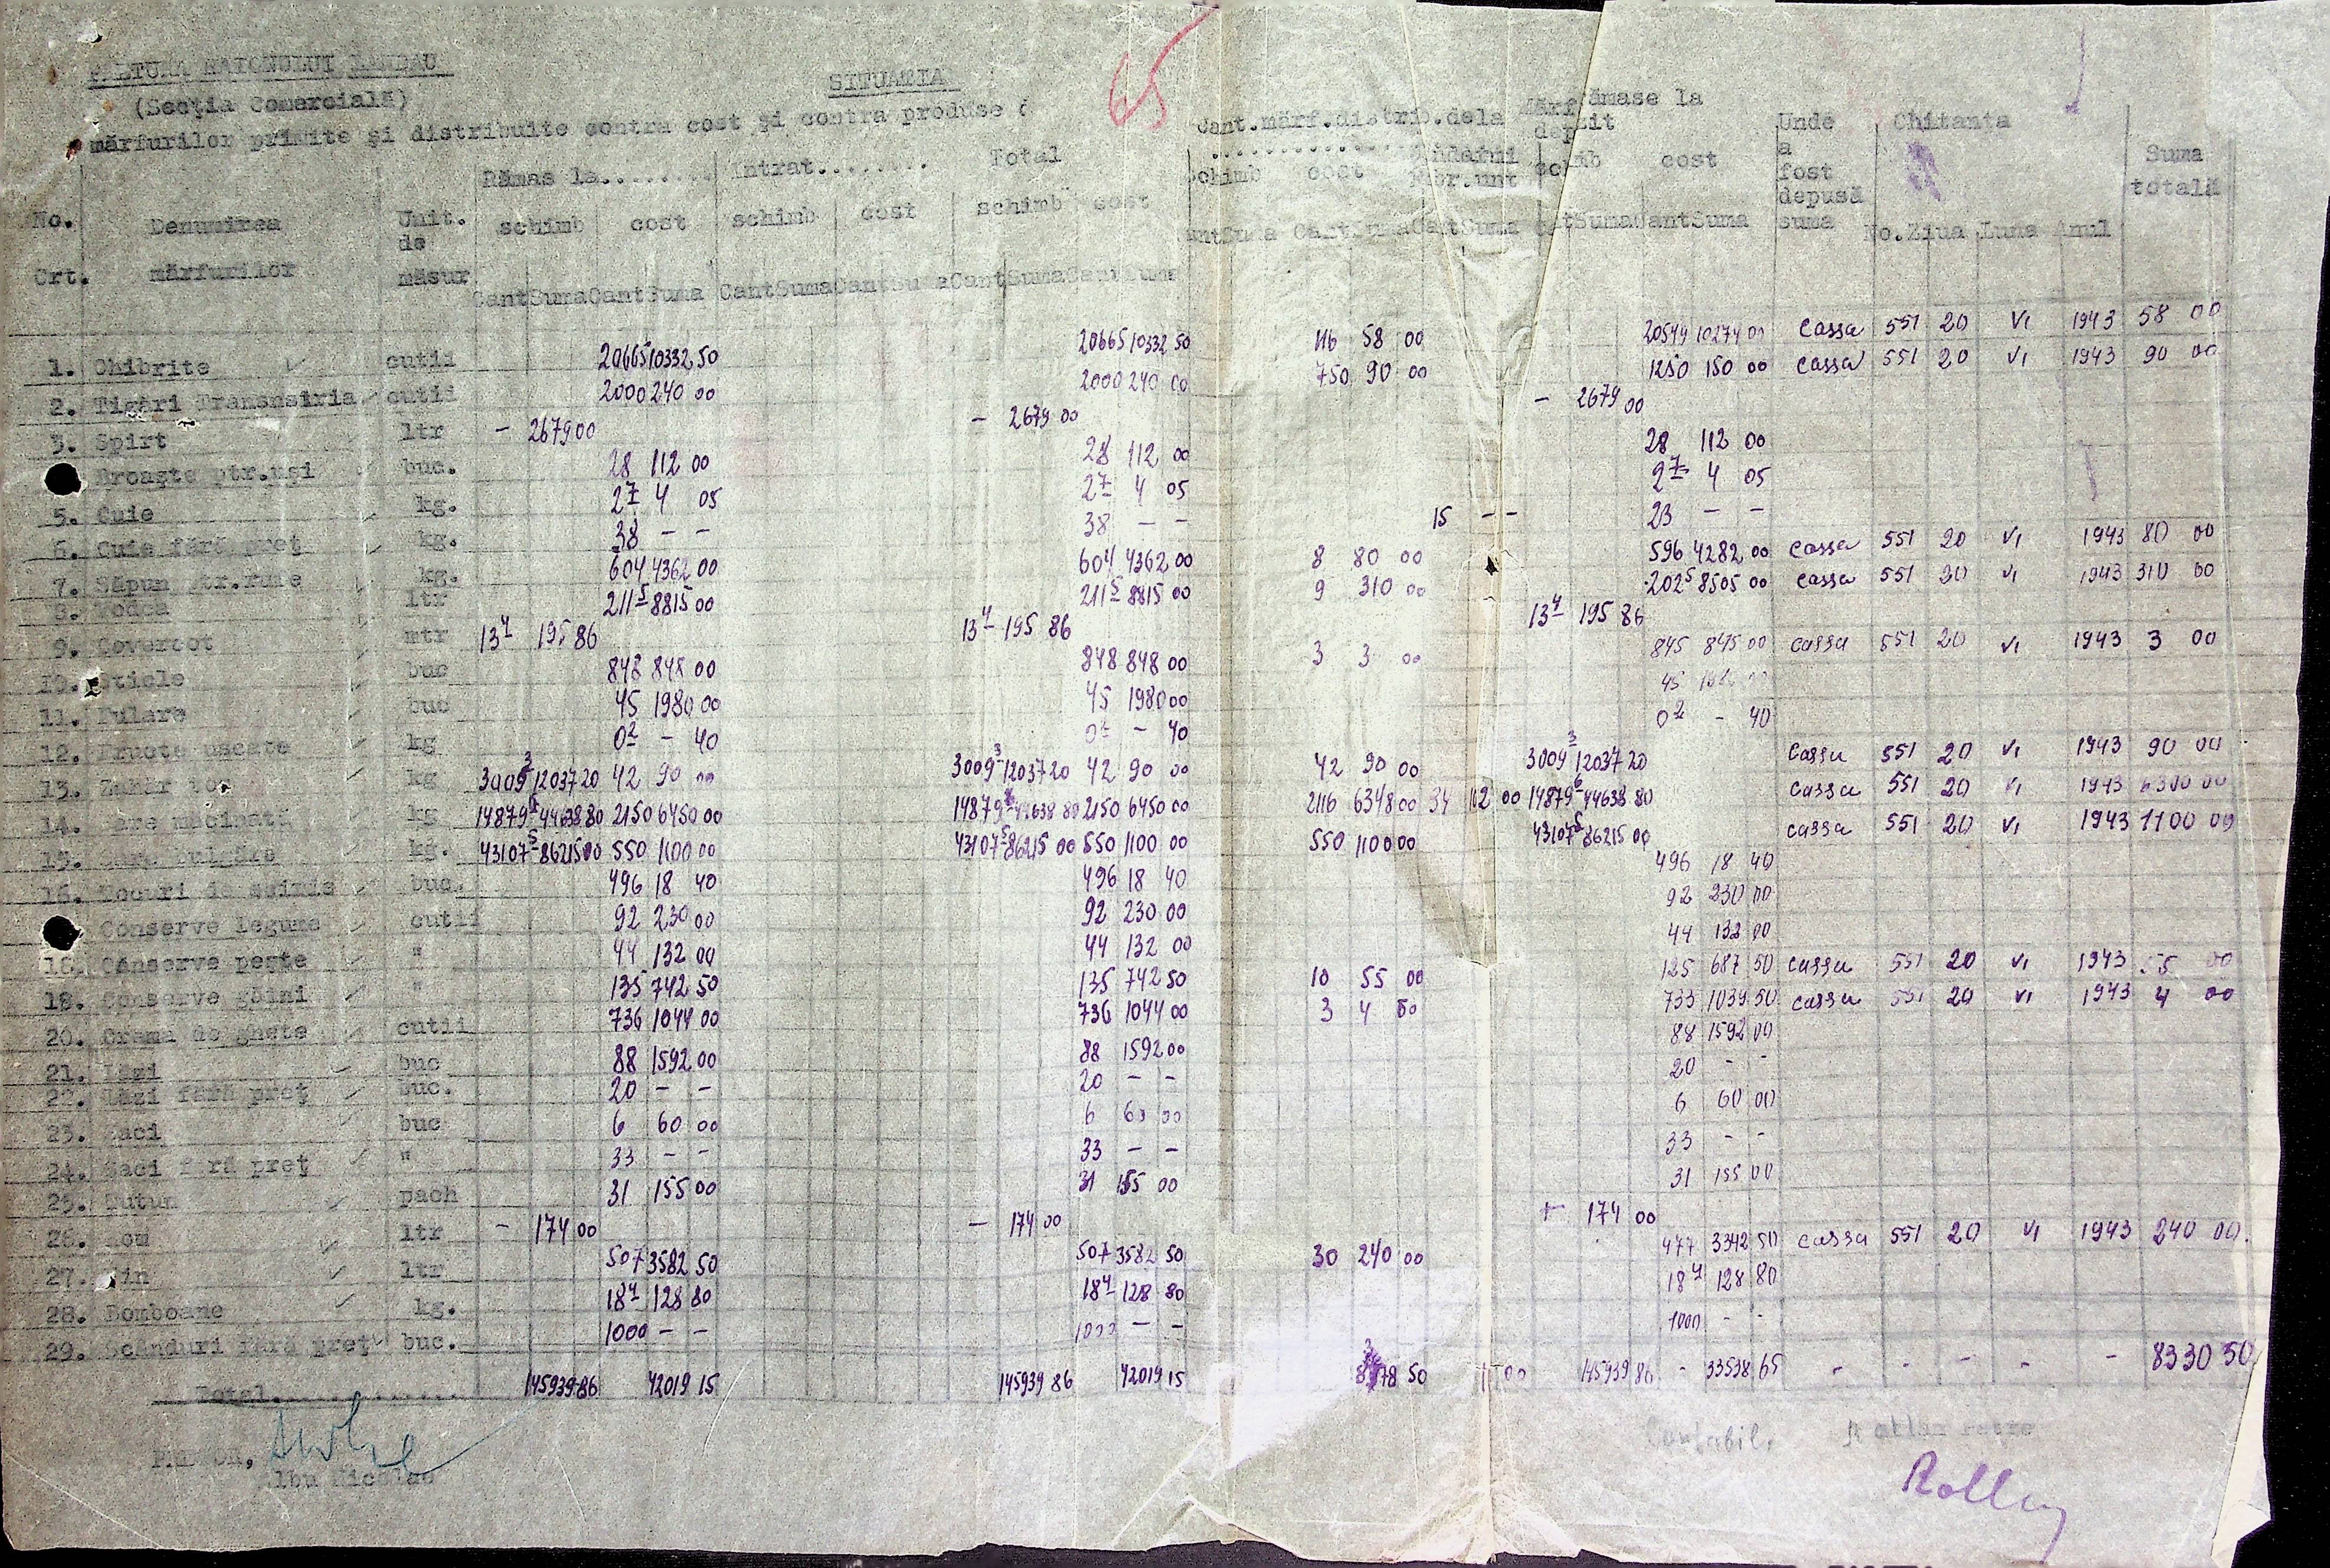 65
PRETURA RAIONULUI LANDAU
(Secţia Comercială)
SITUAŢIA
mărfurilor primite şi distribuite contra cost şi contra produse
No. Crt. Denumirea mărfurilor Unit. de măsur Rămas la........ Intrat........ Total Cant.mărf.distrib.dela Mărf rămase la depozit Unde a fost depusă suma Chitanta Suma totală
schimb cost schimb cost schimb cost schimb cost schimb cost No. Ziua Luna Anul
Cant Suma Cant Suma Cant Suma Cant Suma Cant Suma Cant Suma Cant Suma Cant Suma Cant Suma Cant Suma Cant Suma
1. Chibrite cutii 20665 10332 50 20665 10332 50 116 58 00 20549 10274 00 Cassa 551 20 VI 1943 58 00
2. Tigări Transnsiria cutii 2000 240 00 2000 240 00 750 90 00 1250 150 00 Cassa 551 20 VI 1943 90 00
3. Spirt ltr - 2679 00 - 2679 00 - 2679 00
Broaşte ptr.uşi buc. 28 112 00 28 112 00 28 112 00
5. Cuie kg. 2 7 4 05 2 7 4 05 2 7 4 05
6. Cuie fără preţ kg. 38 - - 38 - - 15 - - 23 - -
7. Săpun ptr.rufe kg. 604 4362 00 604 4362 00 8 80 00 596 4282 00 Cassa 551 20 VI 1943 80 00
8. Vodca ltr 211 5 8815 00 211 5 8815 00 9 310 00 202 5 8505 00 Cassa 551 20 VI 1943 310 00
9. Covercot mtr 13 4 195 86 13 4 195 86 13 4 195 86
10. Sticle buc 848 848 00 848 848 00 3 3 00 845 845 00 Cassa 551 20 VI 1943 3 00
11. Fulare buc 45 1980 00 45 1980 00 45
12. Fructe uscate kg 0 2 - 40 0 2 - 40 0 2 - 40
13. Zahăr tos kg 3009 3 12037 20 42 90 00 3009 3 12037 20 42 90 00 42 90 00 3009 3 12037 20 Cassa 551 20 VI 1943 90 00
14. Sare măcinată kg 14879 6 44638 80 2150 6450 00 14879 6 44638 80 2150 6450 00 2116 6348 00 34 102 00 14879 6 44638 80 Cassa 551 20 VI 1943 6300 00
15. Sare bulgăre kg. 43107 5 86215 00 550 1100 00 43107 5 86215 00 550 1100 00 550 1100 00 43107 5 86215 00 Cassa 551 20 VI 1943 1100 00
16. Tocuri de scris buc. 496 18 40 496 18 40 496 18 40
Conserve legume cutii 92 230 00 92 230 00 92 230 00
18. Conserve peşte " 44 132 00 44 132 00 44 132 00
18. Conserve găini " 135 742 50 135 742 50 10 55 00 125 687 50 Cassa 551 20 VI 1943 55 00
20. Crema de ghete cutii 736 1044 00 736 1044 00 3 4 50 733 1039 50 Cassa 551 20 VI 1943 4 00
21. Lăzi buc 88 1592 00 88 1592 00 88 1592 00
22. Lăzi fără preţ buc. 20 - - 20 - - 20 - -
23. Saci buc 6 60 00 6 60 00 6 60 00
24. Saci fără preţ " 33 - - 33 - - 33 - -
25. Tutun pach 31 155 00 31 155 00 31 155 00
26. ltr - 174 00 - 174 00 - 174 00
27. Vin ltr 507 3582 50 507 3582 50 30 240 00 477 3342 50 Cassa 551 20 VI 1943 240 00
28. Bomboane kg. 18 4 128 80 18 4 128 80 18 4 128 80
29. Scânduri fără preţ buc. 1000 - - 1000 - - 1000 - -
Total.............. 145939 86 42019 15 145939 86 42019 15 8378 50 145939 86 - 33538 65 - - - - - 8330 50
Pretor, Contabil,
Albu Nicolae